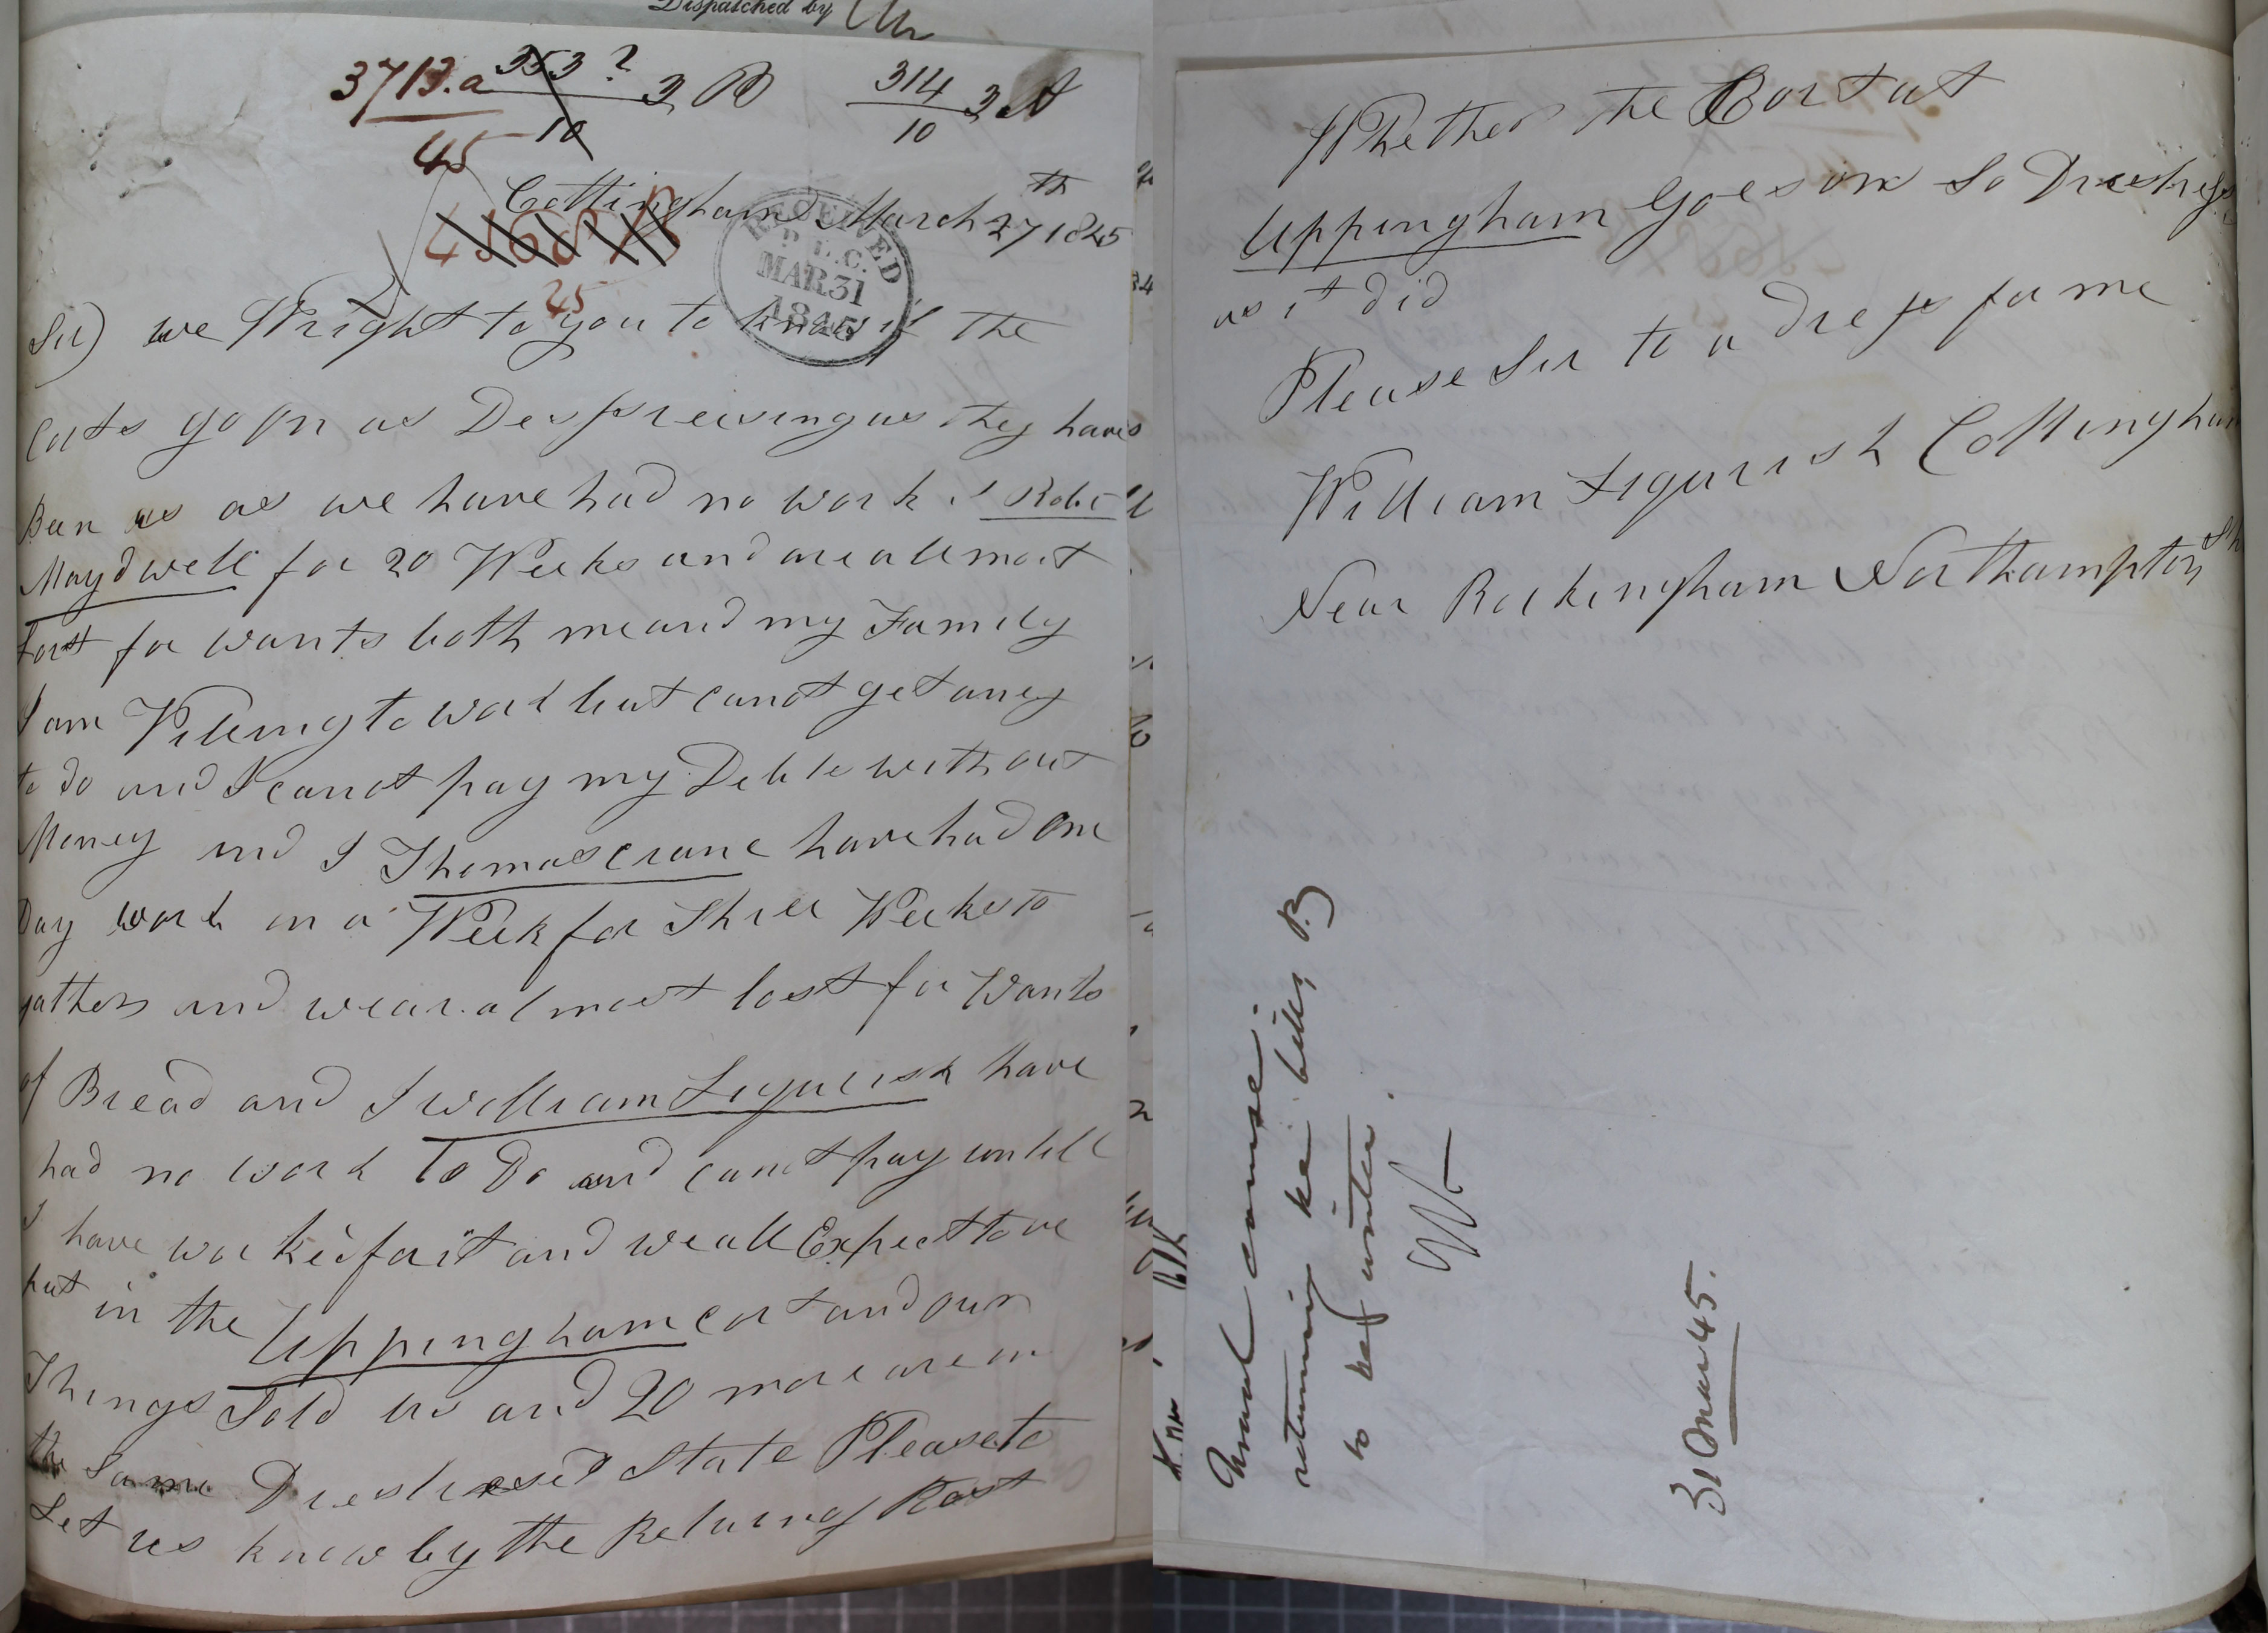 Dispatched by
3713.a 353? 3 B 314 3 A
45 10 10
Cottingham March 27th 1845
4868 B
45
RECEIVED
P.L.C.
MAR 31
1845
Sir) we Wright to you to know if the
Corts go on as Despreising as they have
Been us as we have had no work I Robert
Maydwell for 20 Weeks and are allmost
Lost for wants both me and my Family
I am Willing to work but canot get aney
to do and I canot pay my Debts without
Money and I Thomas Crane have had one
Day work in a Week for Three Weeks to
gathers and we ar almost lost for Wants
of Bread and I William Liquirish have
had no work to Do and canot pay untill
I have worked for it and we all Expect to be
put in the Uppingham cort and our
Things Sold us and 20 more are in
the Same Drestresed State Please to
Let us know by the Returng Post
Whether the Cort at
Uppingham Goes on So Drestresing
as it did
Please Sir to a Dress for me
William Liquirish Cottingham
Near Rockingham Northampton Sh
Usual course.
returning the letter, B
to be written.
31 Mar 45.